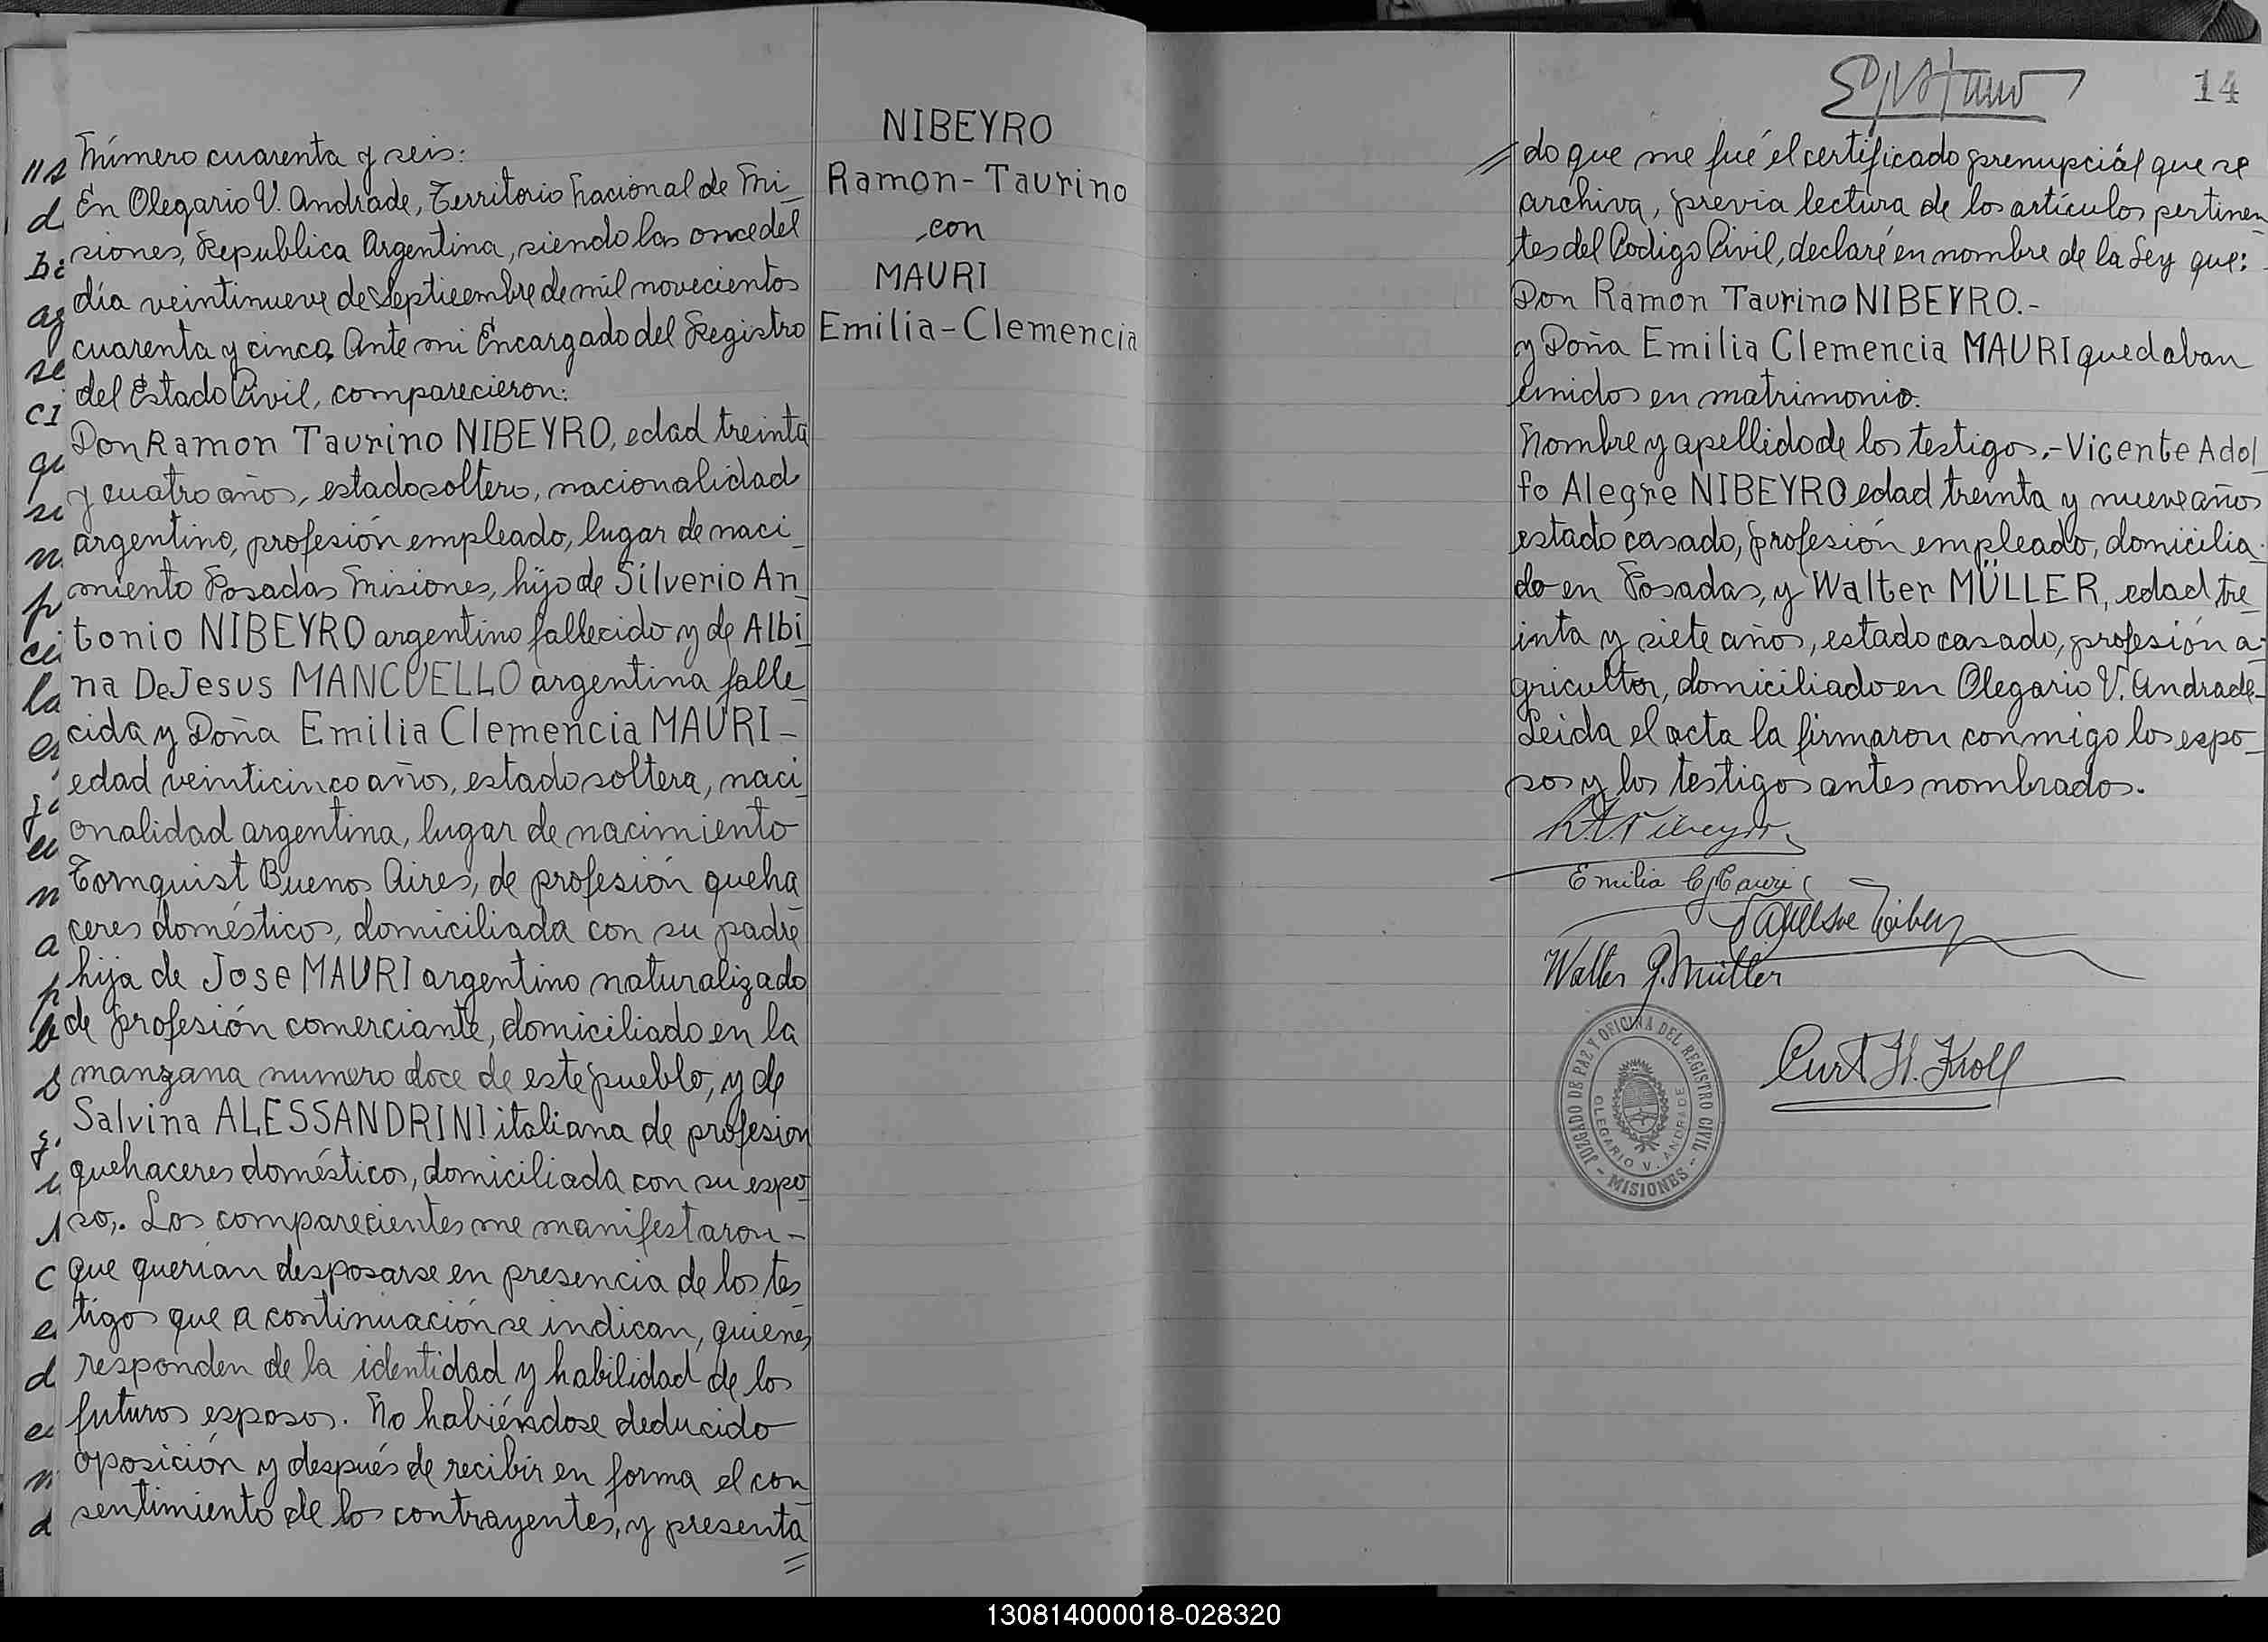 Número cuarenta y seis:
En Olegario V. Andrade, Territorio Nacional de Mi_
siones, Republica Argentina, siendo las once del
día veintinueve de Septieembre de mil novecientos
cuarenta y cinco. Ante mi Encargado del Registro
del Estado Civil, comparecieron:
Don Ramon Taurino NIBEYRO, edad treinta
y cuatro años, estado soltero, nacionalidad
argentino, profesión empleado, lugar de naci_
miento Posadas Misiones, hijo de Silverio An_
tonio NIBEYRO argentino fallecido y de Albi_
na De Jesus MANCUELLO argentina falle_
cida y Doña Emilia Clemencia MAURI-
edad veinticinco años, estado soltera, naci_
onalidad argentina, lugar de nacimiento
Tornquist Buenos Aires, de profesión queha_
ceres domésticos, domiciliada con su padre
hija de Jose MAURI argentino naturalizado
de profesión comerciante, domiciliado en la
manzana numero doce de este pueblo, y de
Salvina ALESSANDRINI italiana de profesion
quehaceres domésticos, domiciliada con su espo_
so,. Los comparecientes me manifestaron-
que querian desposarse en presencia de los tes_
tigos que a continuación se indican, quienes
responden de la identidad y habilidad de los
futuros esposos. No habiéndose deducido
oposición y después de recibir en forma el con_
sentimiento de los contrayentes, y presenta_
NIBEYRO
Ramon-Taurino
con
MAURI
Emilia-Clemencia
14
do que me fué el certificado prenupciál que se
archiva, previa lectura de los artículos pertinen_
tes del Codigo Civil, declaré en nombre de la Ley que:
Don Ramon Taurino NIBEYRO.-
y Doña Emilia Clemencia MAURI quedaban
unidos en matrimonio.
Nombre y apellido de los testigos.-Vicente Adol_
fo Alegre NIBEYRO edad treinta y nueve años
estado casado, profesión empleado, domicilia_
do en Posadas, y Walter MÜLLER, edad tre_
inta y siete años, estado casado, profesión a_
gricultor, domiciliado en Olegario V. Andrade-
Leida el acta la firmaron conmigo los espo_
sos y los testigos antes nombrados.
Emilia C. Mauri
Walter G. Müller
JUZGADO DE PAZ Y OFICINA DEL REGISTRO CIVIL
OLEGARIO V. ANDRADE
- MISIONES -
Curt H. Kroll
130814000018-028320